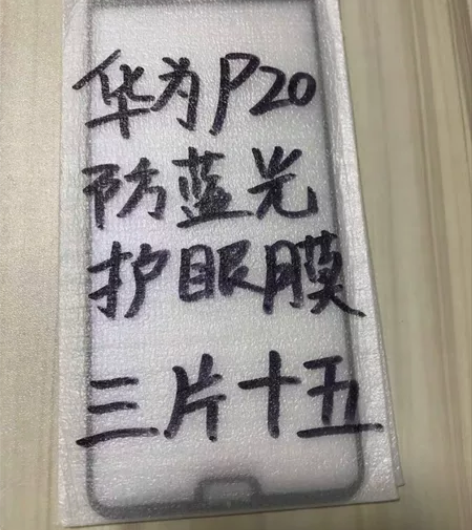 华为P20
防蓝光
护眼膜
三片十五